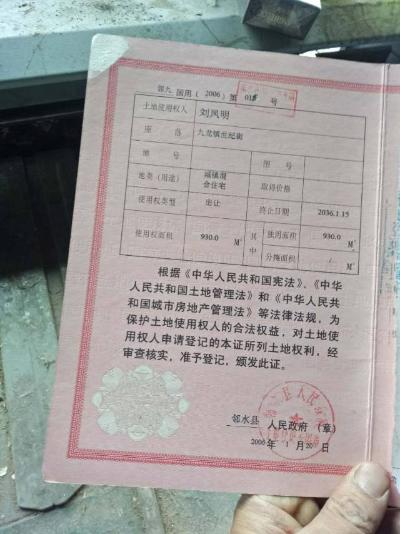 邻九 国用（2006）第 018 号
土地使用权人 刘凤明
座 落 九龙镇世纪街
地 号 图 号
地类（用途） 城镇混合住宅 取得价格
使用权类型 出让 终止日期 2036.1.15
使用权面积 930.0 M² 其中 独用面积 930.0 M²
分摊面积 / M²
根据《中华人民共和国宪法》、《中华
人民共和国土地管理法》和《中华人民共
和国城市房地产管理法》等法律法规，为
保护土地使用权人的合法权益，对土地使
用权人申请登记的本证所列土地权利，经
审查核实，准予登记，颁发此证。
邻水县 人民政府（章）
2006 年 1 月 20 日